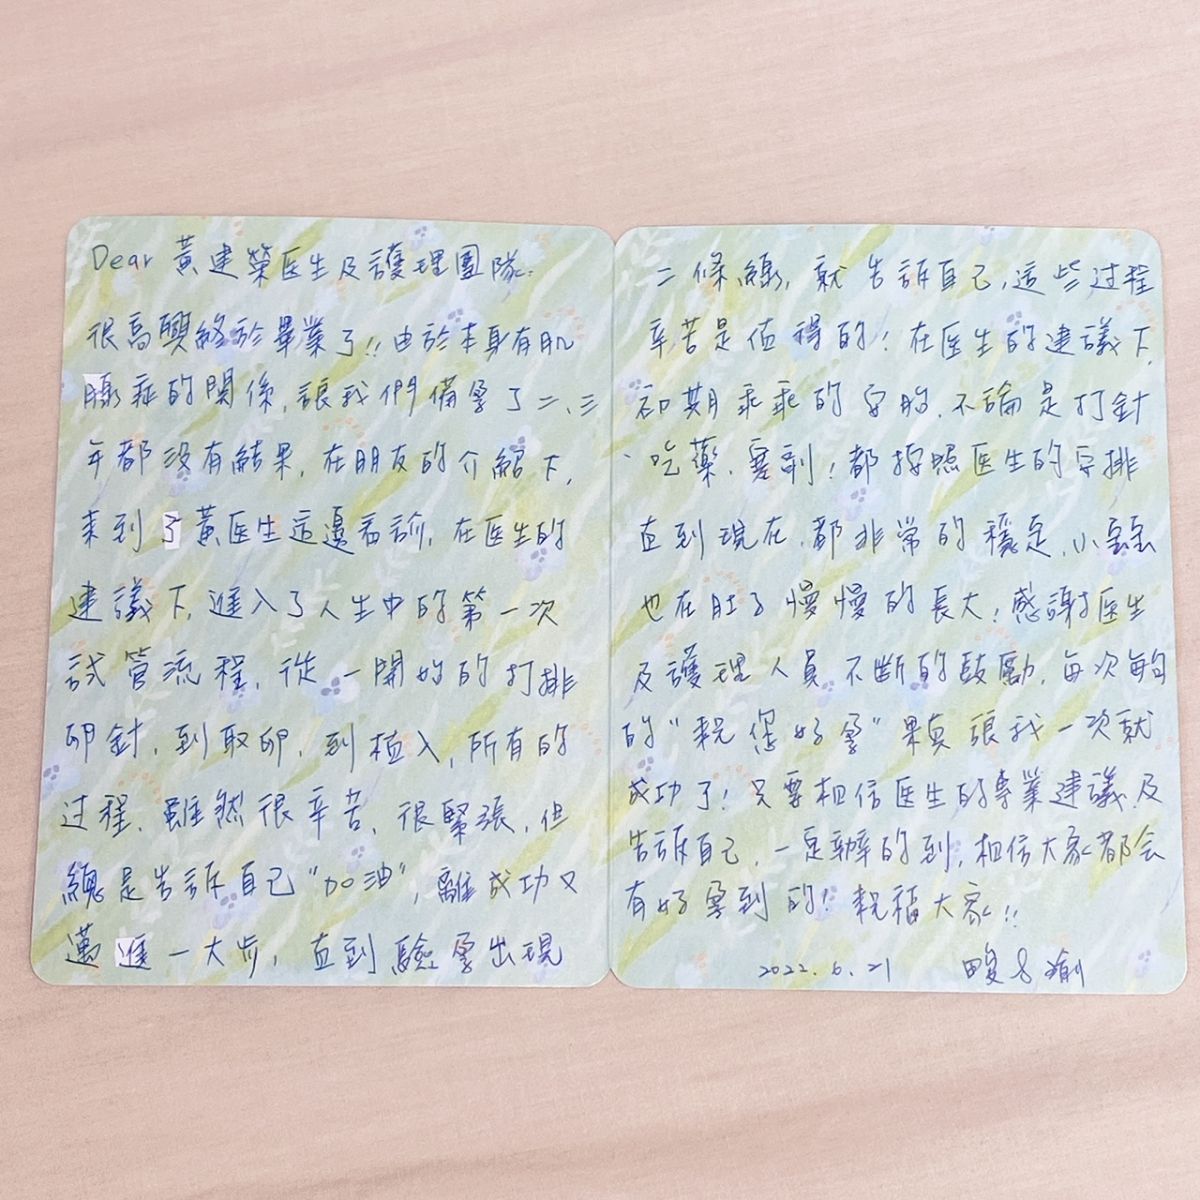 Dear 黃建榮医生及護理團隊:
很高興終於畢業了!! 由於本身有肌
腺症的關係, 讓我們備孕了二、三
年都沒有結果, 在朋友的介紹下,
來到了黃医生這邊看診, 在医生的
建議下, 進入了人生中的第一次
試管流程, 從一開始的打排
卵針, 到取卵, 到植入, 所有的
过程, 雖然很辛苦, 很緊張, 但
總是告訴自己"加油", 離成功又
邁進一大步, 直到驗孕出現
二條線, 就告訴自己, 這些过程
辛苦是值得的! 在医生的建議下,
初期乖乖的安胎, 不論是打針
、吃藥、塞劑! 都按照医生的安排
直到現在, 都非常的穩定, 小寶寶
也在肚子慢慢的長大! 感謝医生
及護理人員不斷的鼓勵, 每次每句
的"祝您好孕"果真讓我一次就
成功了! 只要相信医生的專業建議及
告訴自己, 一定辦的到, 相信大家都会
有好孕到的! 祝福大家!!
2022.6.21